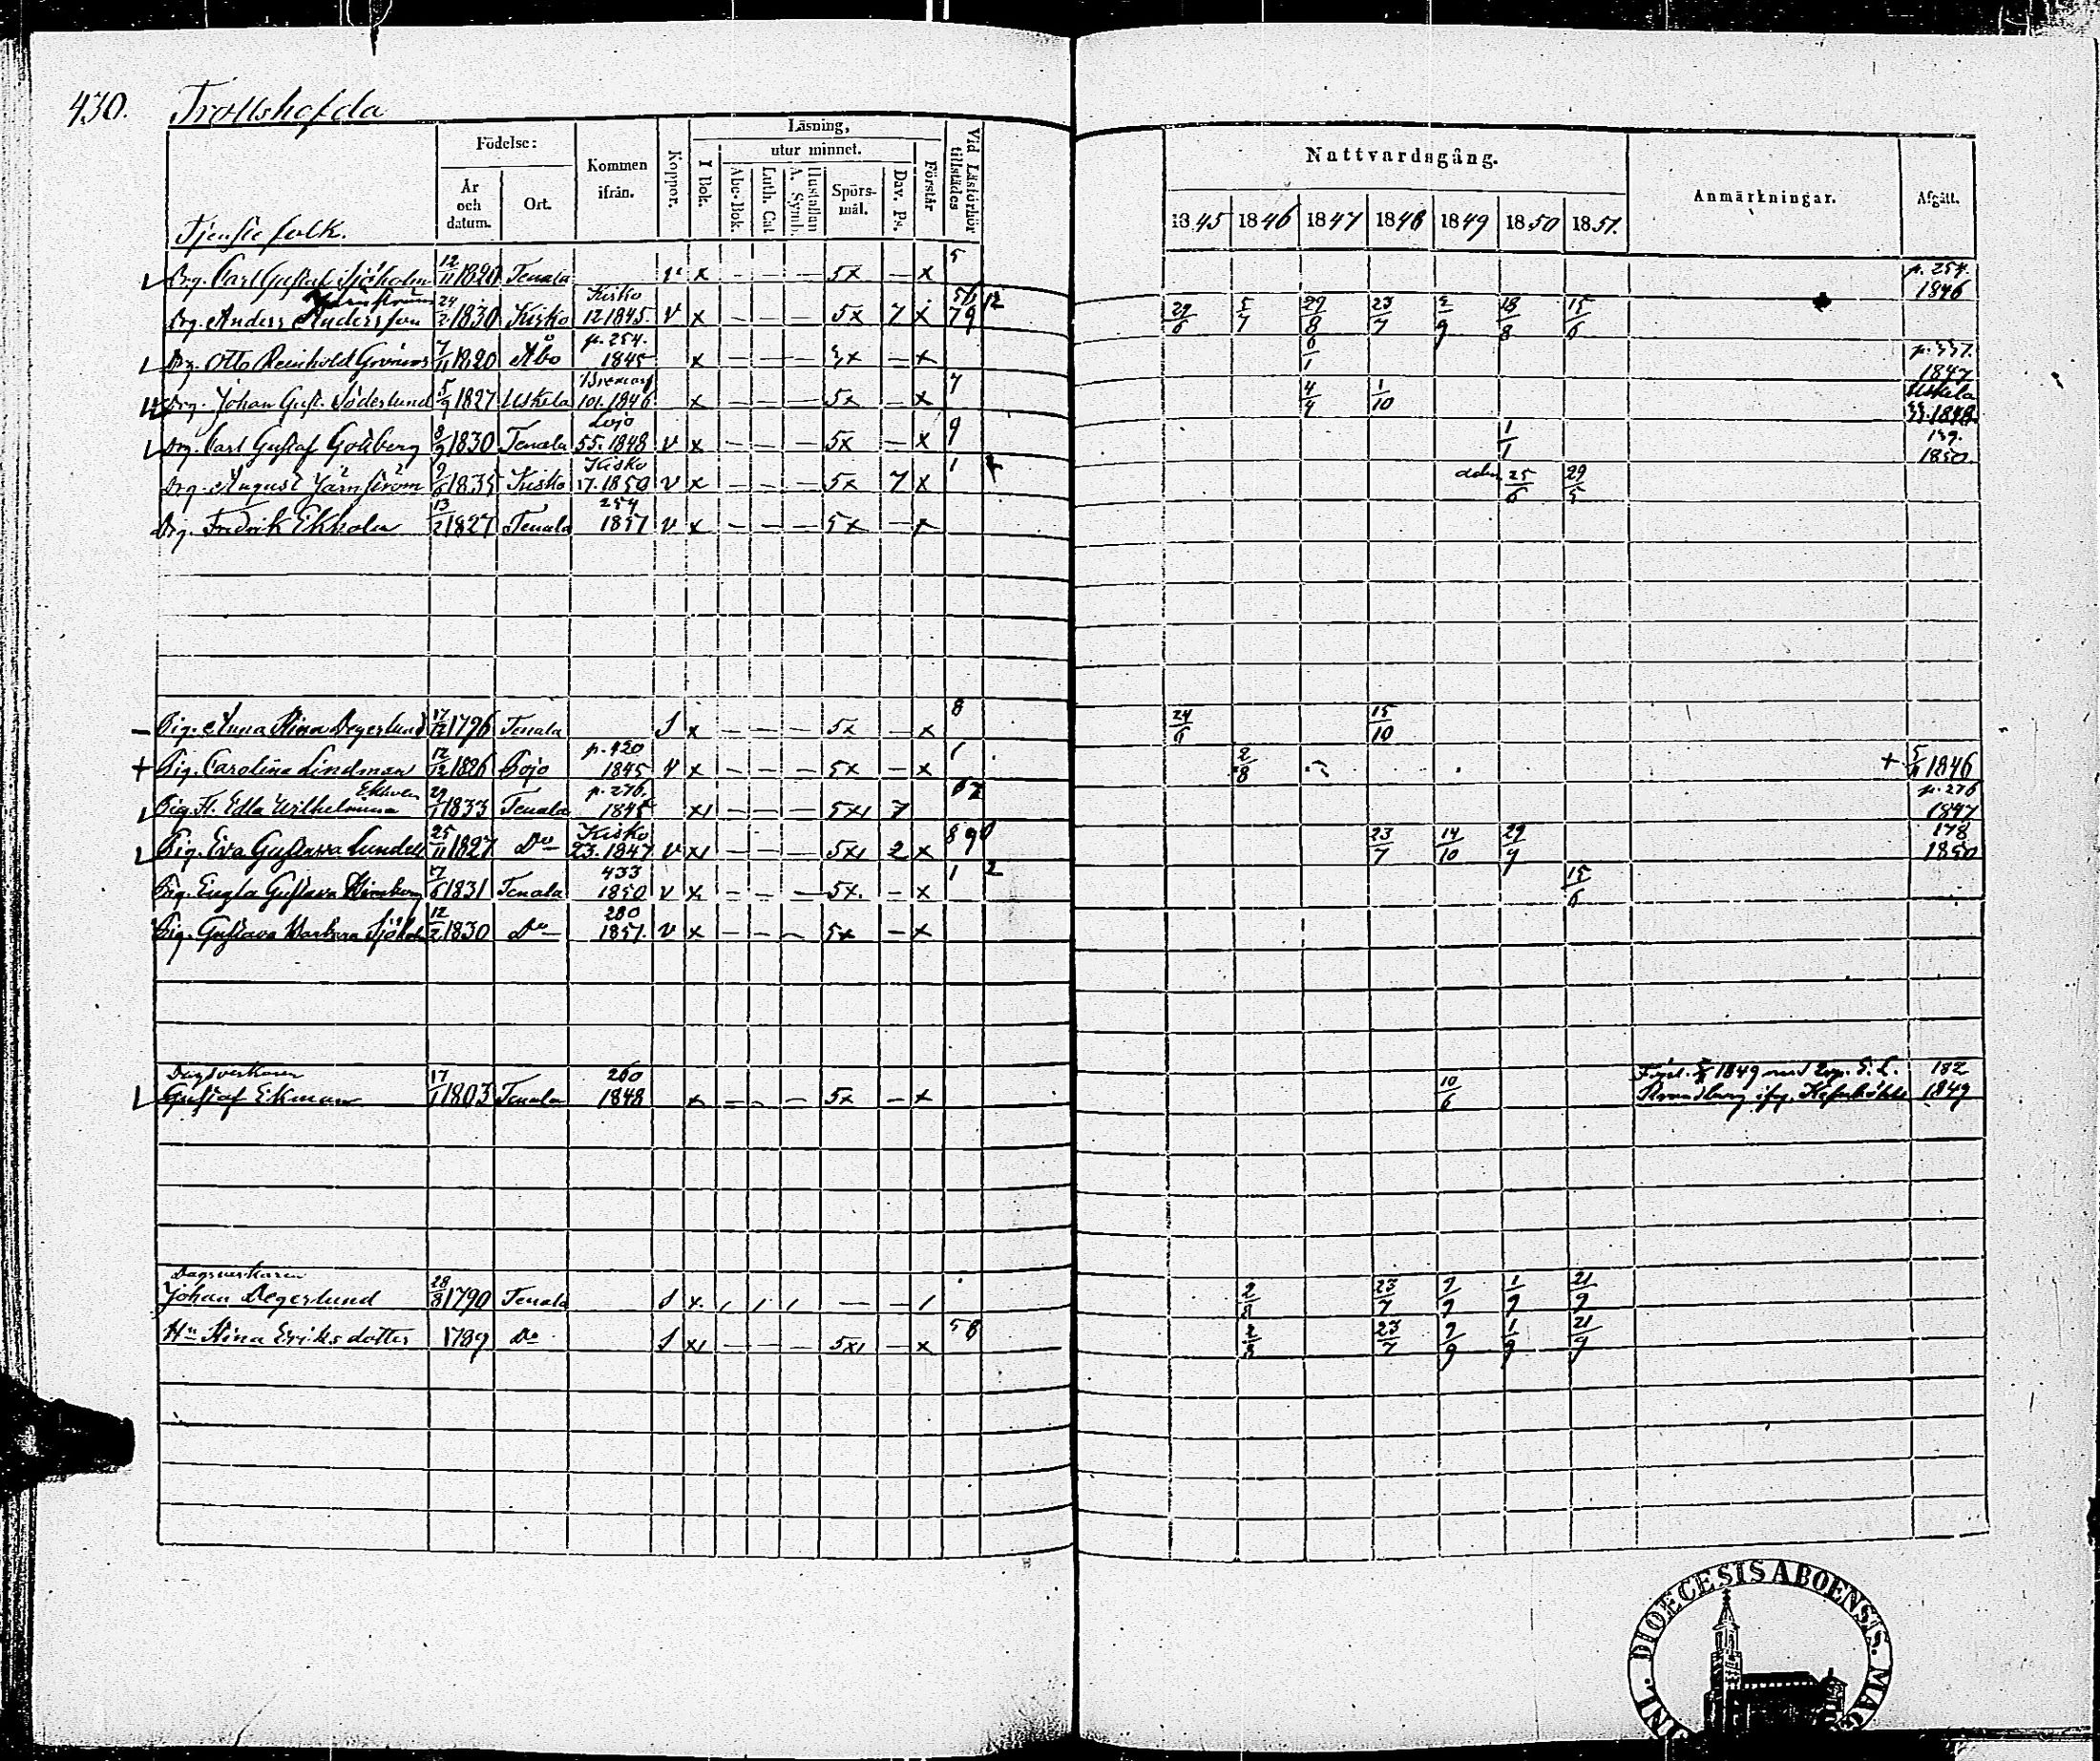 430. Trollshofda
Tjenste folk.
Födelse:
År och datum.
Ort.
Kommen ifrån.
Koppor.
Läsning,
I Bok.
utur minnet.
Abc-Bok.
Luth. Cat.
Hustaflan A. Symb.
Spörs-mål.
Dav. Ps.
Förstår
Vid Läsförhör tillstädes
Nattvardsgång.
1845 1846 1847 1848 1849 1850 1851.
Anmärkningar.
Afgått.
Drg. Carl Gustaf Sjöholm 12/11 1820 Tenala x — — — 5x — x 5 p. 254. 1846
Drg. Anders Andersson Järnström 24/2 1830 Kisko Kisko 12.1845. v x — — — 5x 7 x 79 12 5/7 29/8 23/7 18/8 15/6
Drg. Otto Reinhold 7/11 1820 Åbo p. 254. 1845 x — — — x — x 6/1 1847
Drg. Johan Gust. Söderlund 5/9 1827 Uskela 101. 1846 x — — — 5x — x 7 4/4 1/10 Uskela 1848.
Drg. Carl Gustaf Goldberg 8/9 1830 Tenala Lojo 55. 1848 v x — — — 5x — x 9 1/1 139. 1850.
Drg. August Järnström 9/6 1835 Kisko Kisko 17.1850 v x — — — 5x 7 x 1 25/6 29/5
Drg. Fredrik Ekholm 13/2 1827 Tenala 254 1851 v x — — — 5x — x
Pig. Anna Stina Degerlund 17/12 1796 Tenala S x — — — 5x — x 8 24/6 15/10
Pig. Carolina Lindman 12/12 1826 Pojo p. 420 1845 v x — — — 5x — x 1 2/8 + 5/11 1846
Pig. Fl. Edla Wilhelmina 29/1 1833 Tenala p. 276. 1845 x1 — — — 5x1 7 67 p. 276 1847
Pig. Eva Gustava Lundell 25/11 1827 Do Kisko 23. 1847 v x1 — — — 5x1 2 x 890 23/7 14/10 29/9 178 1850
Pig. Engla Gustava 17/6 1831 Tenala 433 1850 v x — — — 5x. — x 1 2 15/6
Pig. Gustava Barbara 12/2 1830 Do 280 1851. v x — — — 5x — x
Dagsverkaren
Gustaf Ekman 17/1 1803 Tenala 260 1848 x — — — 5x — x 10/6 1849 182 1849
Dagsverkaren
Johan Degerlund 28/8 1790 Tenala S x. / / / — — / 2/8 23/7 7/9 1/9 21/9
Hu Stina Eriksdotter 1789 Do S x1 — — — 5x1 — x 58 2/8 23/7 7/9 1/9 21/9
DIOECESIS ABOENSIS. MAG